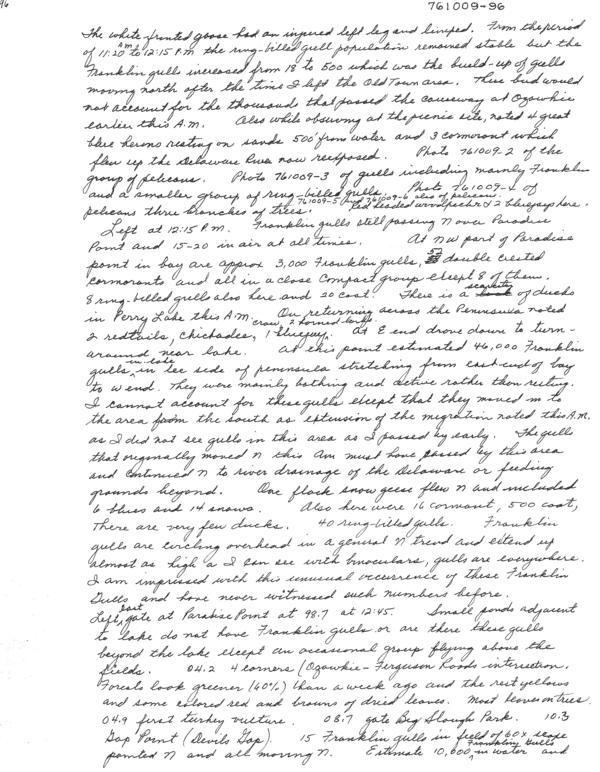 96
761009-96
The white-fronted goose had an injured left leg and limped. From the period
of 11:20 AM to 12:15 P.M. the ring-billed gull population remained stable but the
Franklin gulls increased from 18 to 500 which was the build-up of gulls
moving north after the time I left the Old Town area. This bud would
not account for the thousands that passed the causeway at Ozawkie
earlier this A.M. Also while observing at the picnic site, noted 4 great
blue herons resting on sands 500' from water and 3 cormorant which
flew up the Delaware River now reexposed. Photo 761009-2 of the
group of pelicans. Photo 761009-3 of gulls including mainly Franklin
and a smaller group of ring-billed gulls. Photo 761009-4 of
pelicans thru branches of trees. 761009-5 and 761009-6 also of pelicans. Red headed woodpecker & 2 bluejays here.
Left at 12:15 P.M. Franklin gulls still passing N over Paradise
Point and 15-20 in air at all times. At NW part of Paradise
point in bay are approx 3,000 Franklin gulls, 52 double crested
cormorants and all in a close compact group except 8 of them.
8 ring-billed gulls also here and 20 coot. There is a scarcity of ducks
in Perry Lake this A.M. On returning across the Peninsula noted
2 redtails, chickadee, crow, 2 horned larks, 1 bluejay. At E end drove down to turn-
around near lake. At this point estimated 46,000 Franklin
gulls in lake in lee side of peninsula stretching from east end of bay
to W end. They were mainly bathing and active rather than resting.
I cannot account for these gulls except that they moved in to
the area from the south as extension of the migration noted this A.M.
as I did not see gulls in this area as I passed by early. The gulls
that originally moved N this AM must have passed by this area
and continued N to river drainage of the Delaware or feeding
grounds beyond. One flock snow geese flew N and included
6 blues and 14 snows. Also here were 16 cormorant, 500 coot,
There are very few ducks. 40 ring-billed gulls. Franklin
gulls are circling overhead in a general N trend and extend up
almost as high as I can see with binoculars, gulls are everywhere.
I am impressed with this unusual occurrence of these Franklin
Gulls and have never witnessed such numbers before.
Left east gate at Paradise Point at 98.7 at 12:45. Small ponds adjacent
to lake do not have Franklin gulls or are there these gulls
beyond the lake except an occasional group flying above the
fields. 04.2 4 corners (Ozawkie-Ferguson Roads intersection.
Forests look greener (60%) than a week ago and the rest yellows
and some colored red and browns of dried leaves. Most leaves on trees.
04.9 first turkey vulture. 08.7 gate Big Slough Park. 10.3
Gap Point (Devils Gap) 15 Franklin gulls in field of 60x scope
pointed N and all moving N. Estimate 10,000 Franklin Gulls in water and